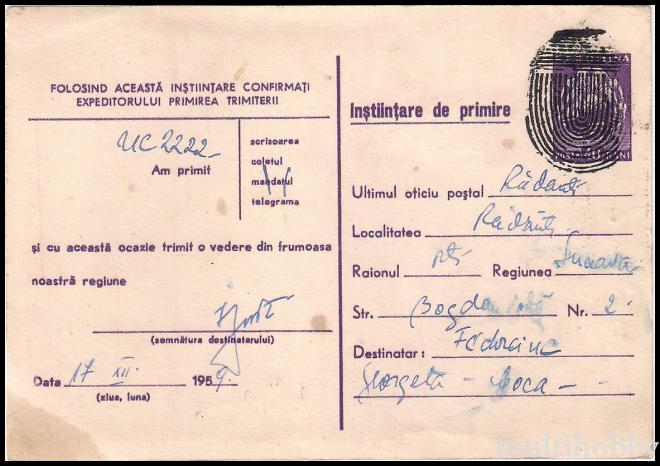 FOLOSIND ACEASTĂ INȘTIINȚARE CONFIRMAȚI
EXPEDITORULUI PRIMIREA TRIMITERII
UC 2222
Am primit
scrisoarea
coletul
mandatul
telegrama
și cu această ocazie trimit o vedere din frumoasa
noastră regiune
(semnătura destinatarului)
Data 17 XII. 1959.
(ziua, luna)
Inștiințare de primire
Ultimul oficiu poștal Rădăuți
Localitatea Rădăuți
Raionul Regiunea Suceava
Str. Bogdan Vodă Nr. 2
Destinatar:
Georgeta - Coca -
multihobby